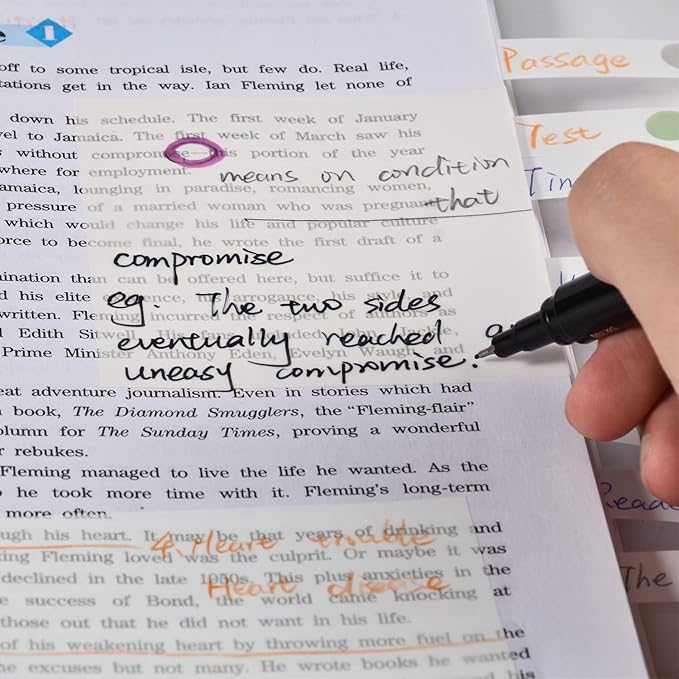 e 1
off to some tropical isle, but few do. Real life,
tations get in the way. Ian Fleming let none of
down his schedule. The first week of January
vel to Jamaica. The first week of March saw his
without compromise—this portion of the year
where for employment.
means on condition
amaica, lounging in paradise, romancing women,
pressure of a married woman who was pregnant
that
which would change his life and popular culture
orce to become final, he wrote the first draft of a
compromise
ination than can be offered here, but suffice it to
d his elite ence, his arrogance, his style and
eg. The two sides
written. Fleming incurred the respect of authors as
eventually reached a
l Edith Sitwell. His fans included John
Prime Minister Anthony Eden, Evelyn Waugh, and
uneasy compromise.
eat adventure journalism. Even in stories which had
book, The Diamond Smugglers, the “Fleming-flair”
olumn for The Sunday Times, proving a wonderful
r rebukes.
Fleming managed to live the life he wanted. As the
he took more time with it. Fleming's long-term
more often.
ugh his heart. It may be that years of drinking and
4. Heart trouble
king Fleming loved was the culprit. Or maybe it was
declined in the late 1950s. This plus anxieties in the
Heart disease
e success of Bond, the world came knocking at
those out that he did not want in his life.
of his weakening heart by throwing more fuel on the
he excuses but not many. He wrote books he wanted
his
Passage
Test
Tin
Reade
The